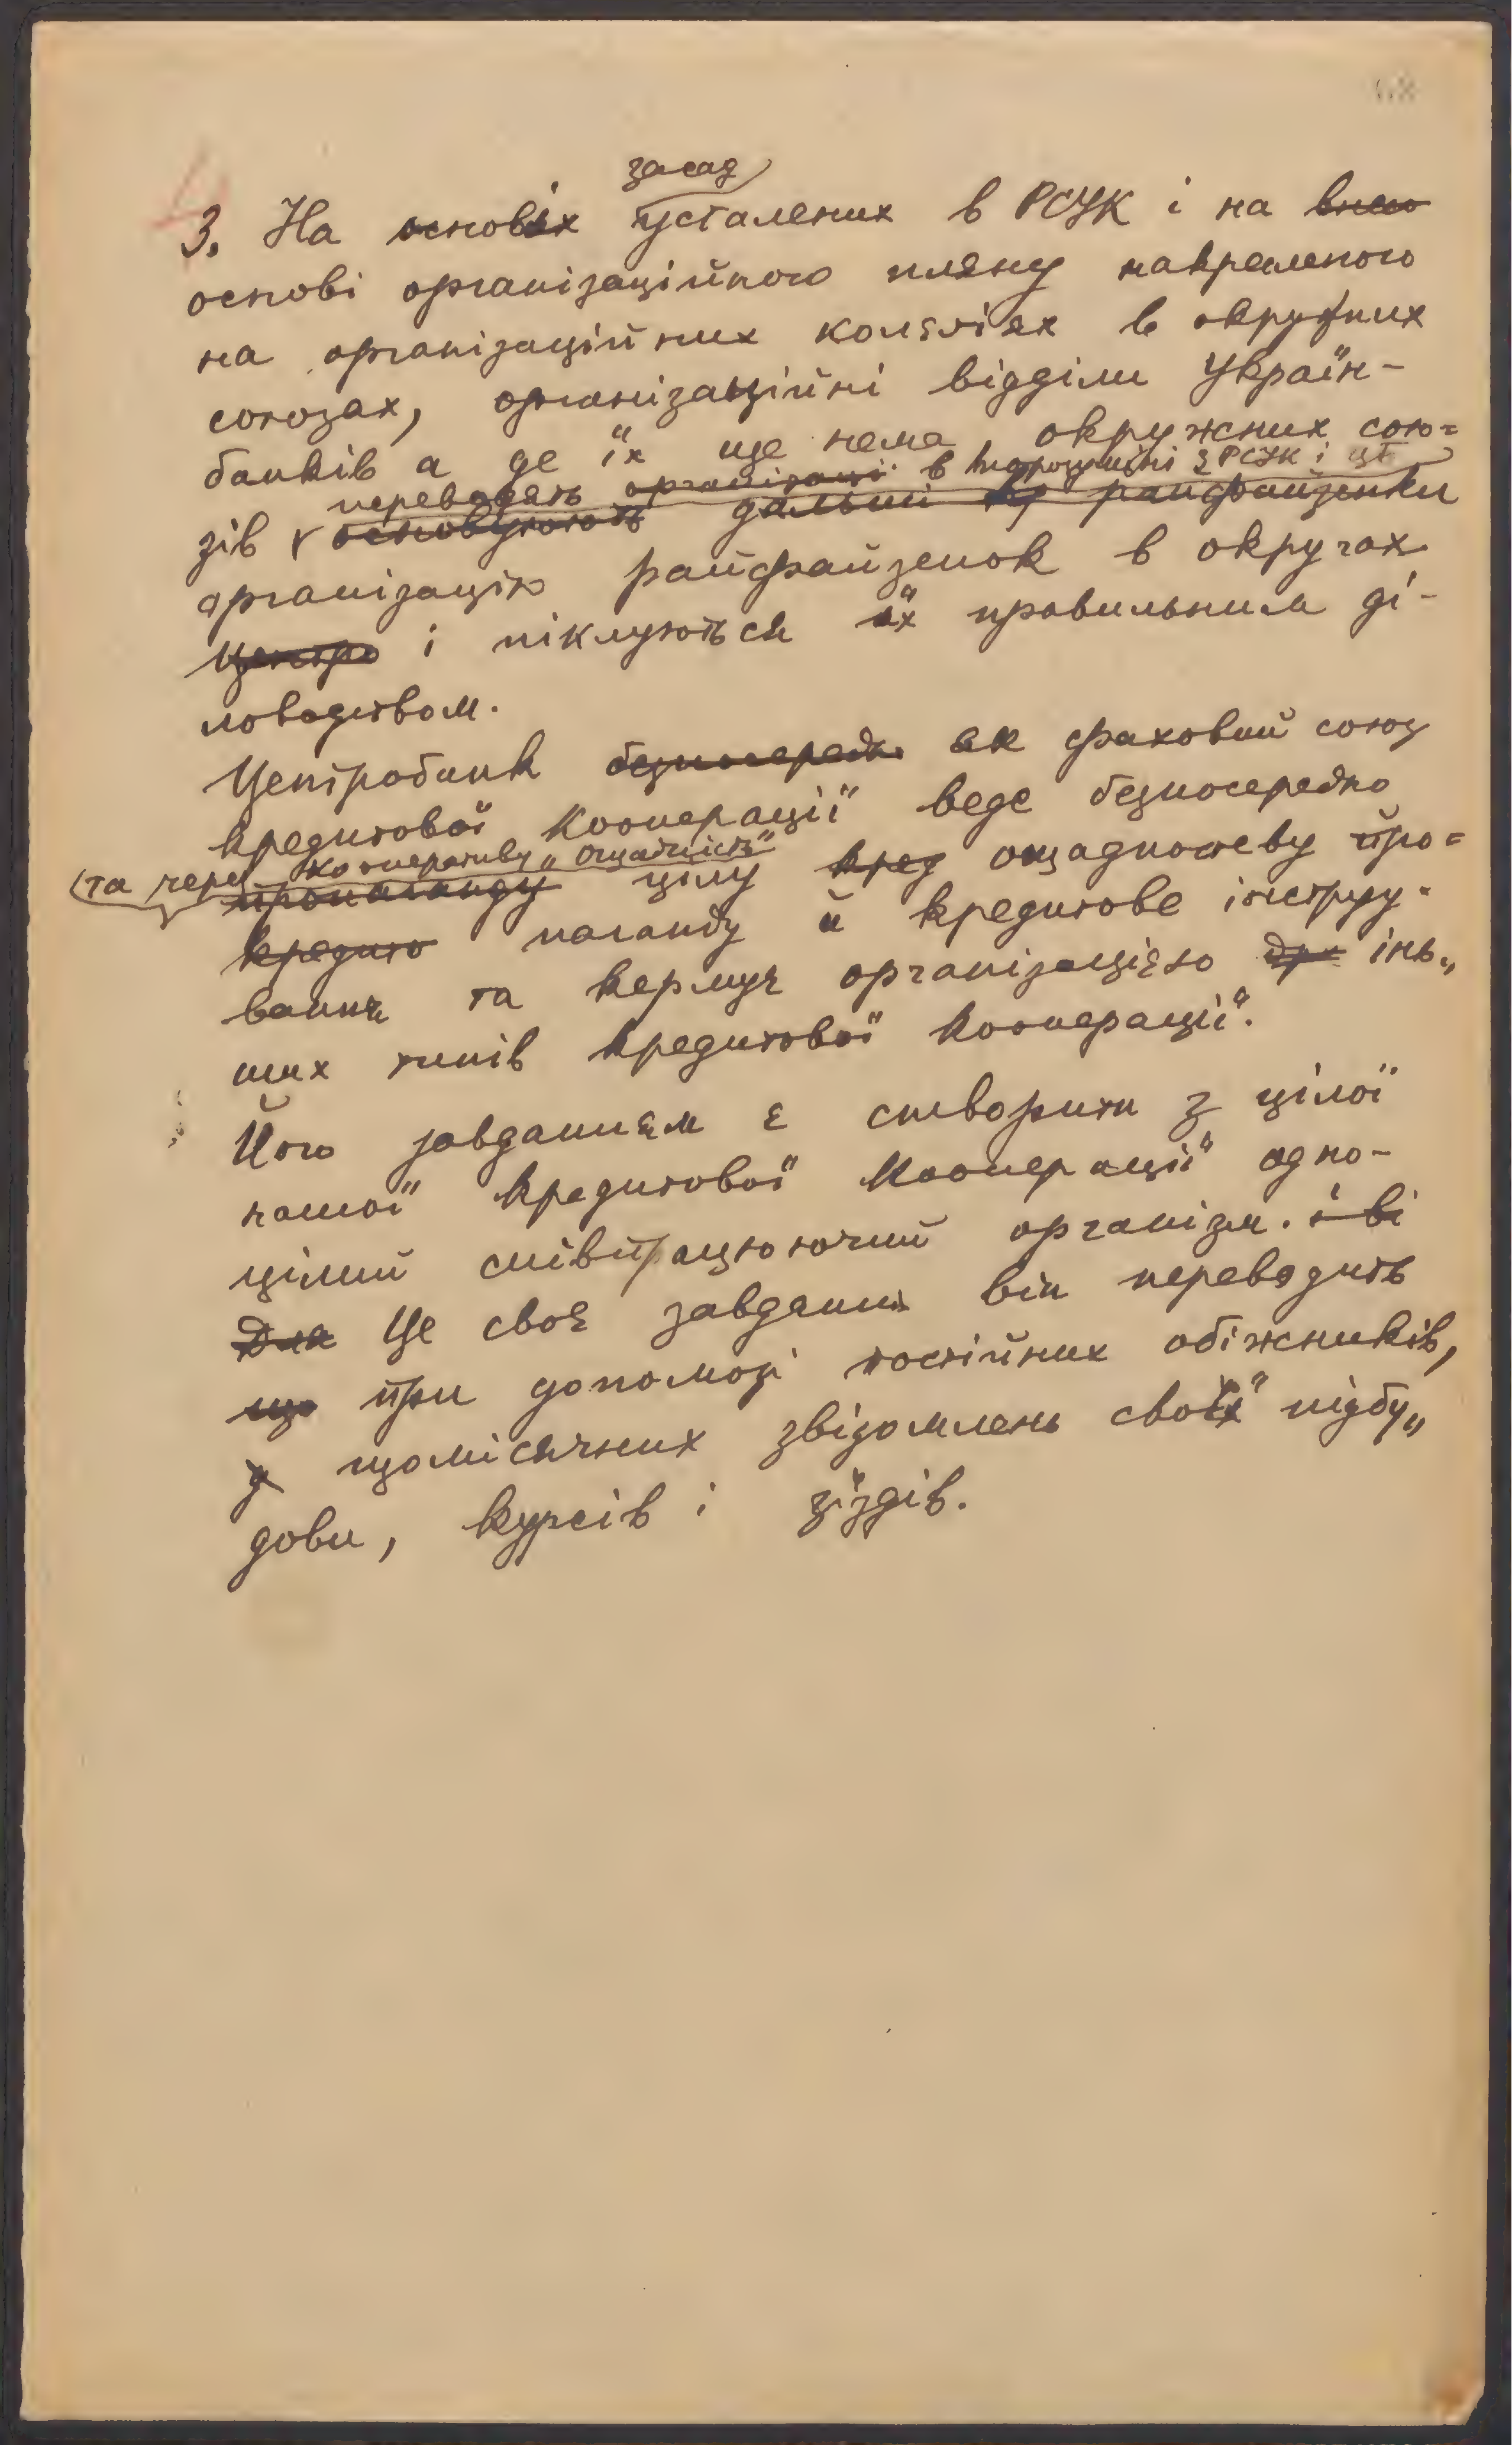 засад
3. На основах усталених в РСУК і на внесо
основі організаційного пляну накресленого
на організаційних колєґіях в окружних
союзах, організаційні відділи Україн-
банків а де їх ще нема, окружних сою=
переводять організації в порозумінні з РСУК і ЦБ
зів основують дальші кр райфайзенки
організацію райфайзенок в округах
Центро і піклуються їх правильним ді-
ловодством.
Центробанк безпосередно як фаховий союз
кредитової кооперації веде безпосередно
(та через кооперативу „Ощадність"
пропаганду цілу кред ощадностеву про=
кредито паганду й кредитове інструу-
ваннє та кермує організацією дру інь„
ших типів кредитової кооперації.
Його завданнєм є створити з цілої
нашої кредитової кооперації одно-
цілий співпрацюючий організм. і ві
Для Це своє завдання він переводить
що при допомозі постійних обіжників,
з щомісячних звідомлень своїх підбу„
дови, курсів і зїздів.